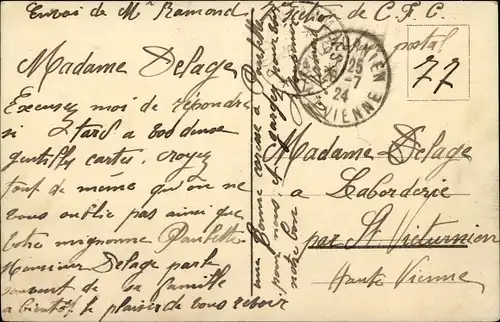 Envoi de Mr Ramond
de C.F.C.
postal
77
Madame Delage
Excusez moi de répondre
si tard a vos deux
gentilles cartes. croyez
tout de même qu'on ne
vous oublie pas ainsi que
votre mignonne Paulette
Monsieur Delage parle
souvent de sa famille
a bientôt le plaisir de vous revoir
une bonne caresse a Paulette
pour nous, et
notre bon
25
-7
24
VIENNE
Madame Delage
a Laborderie
par St Victurnien
Haute Vienne